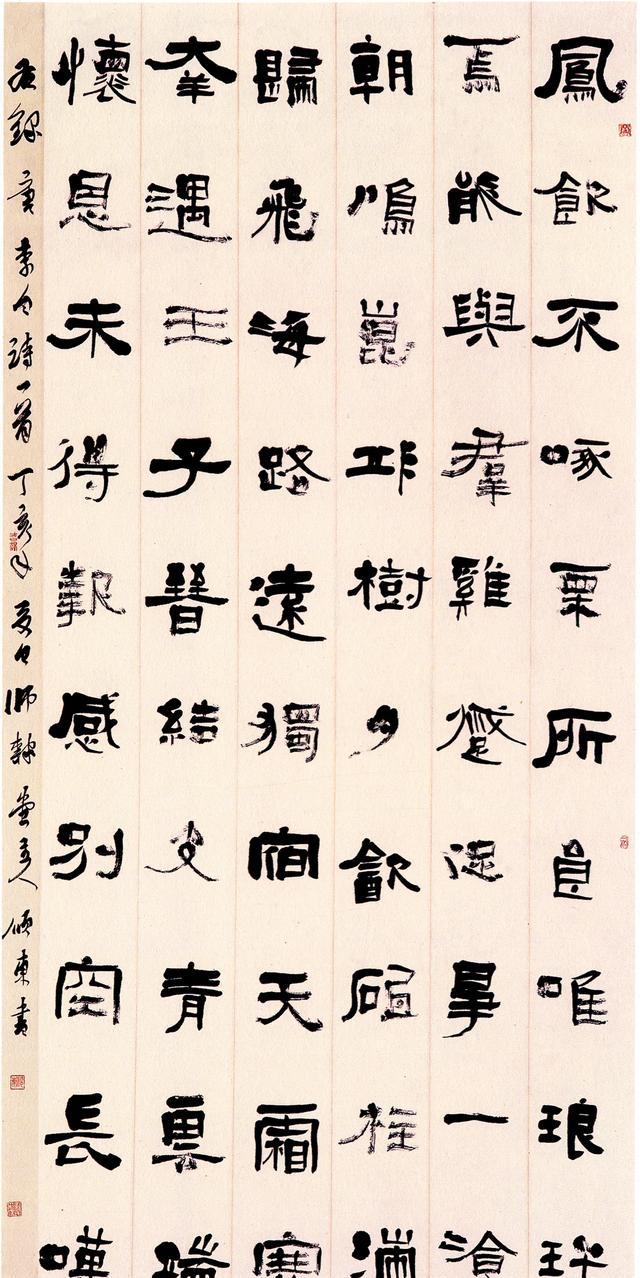 鳳飢不啄粟所食唯琅玕
焉能與羣雞蹙促爭一湌
朝鳴崑邱樹夕飲砥柱湍
歸飛海路遠獨宿天霜寒
幸遇王子晉結交青雲端
懷恩未得報感別空長嘆
右録唐李白詩一首丁亥年夏日師隸堂主人東書